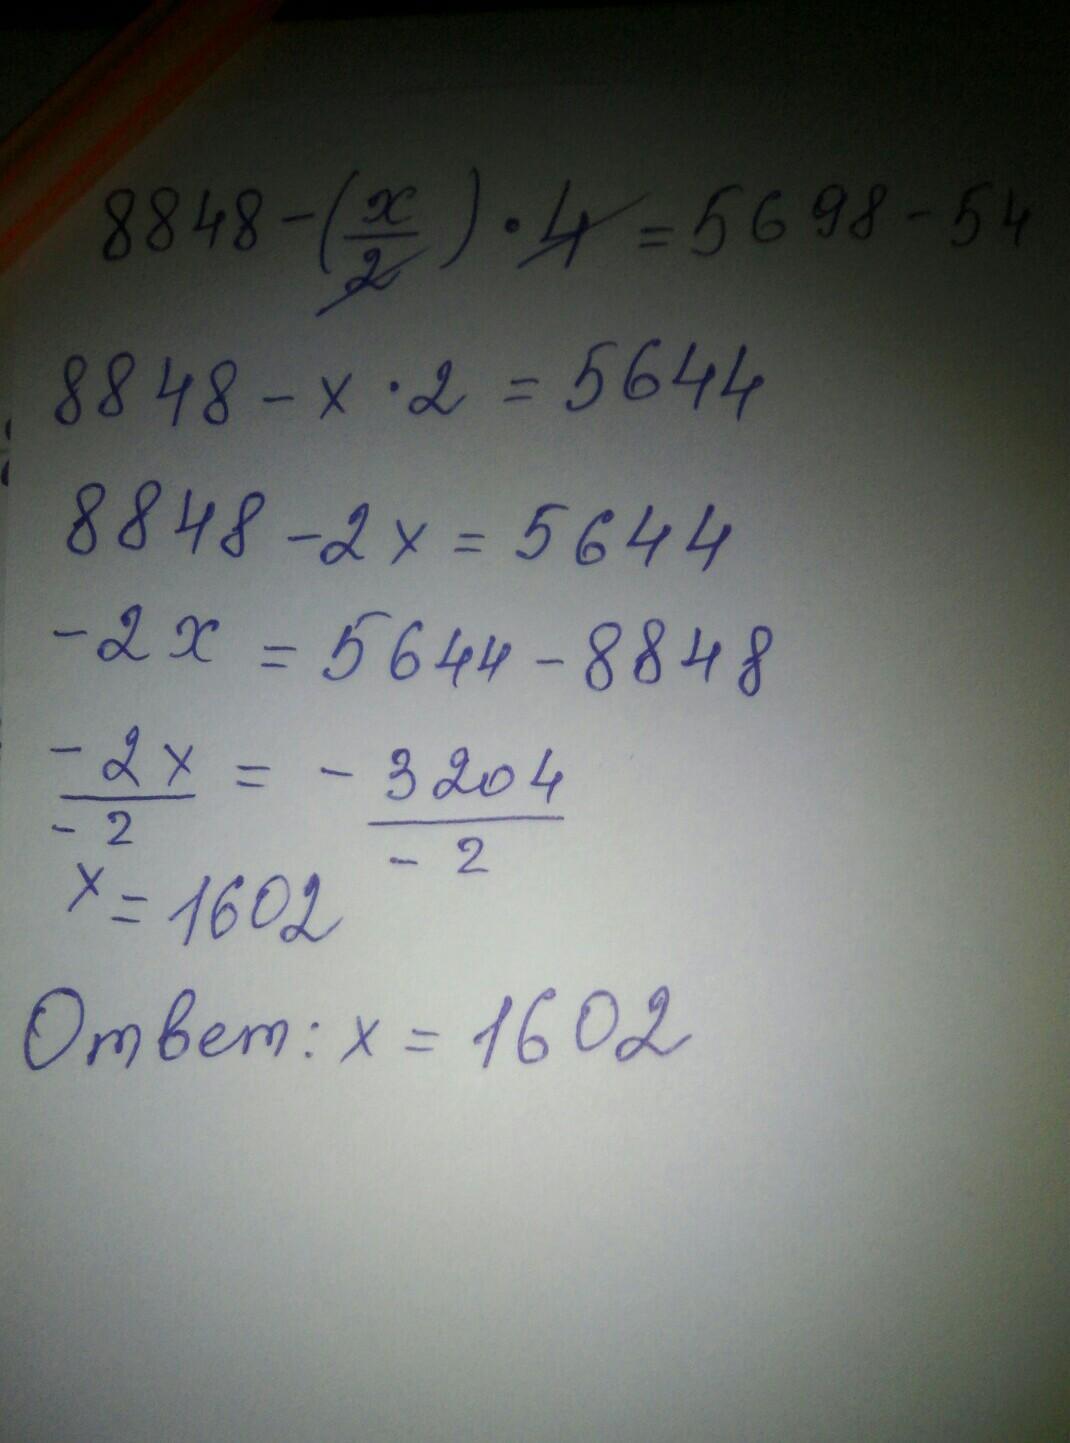 8848-(x/2)·4=5698-54
8848-x·2=5644
8848-2x=5644
-2x=5644-8848
-2x/-2=-3204/-2
x=1602
Ответ: x=1602